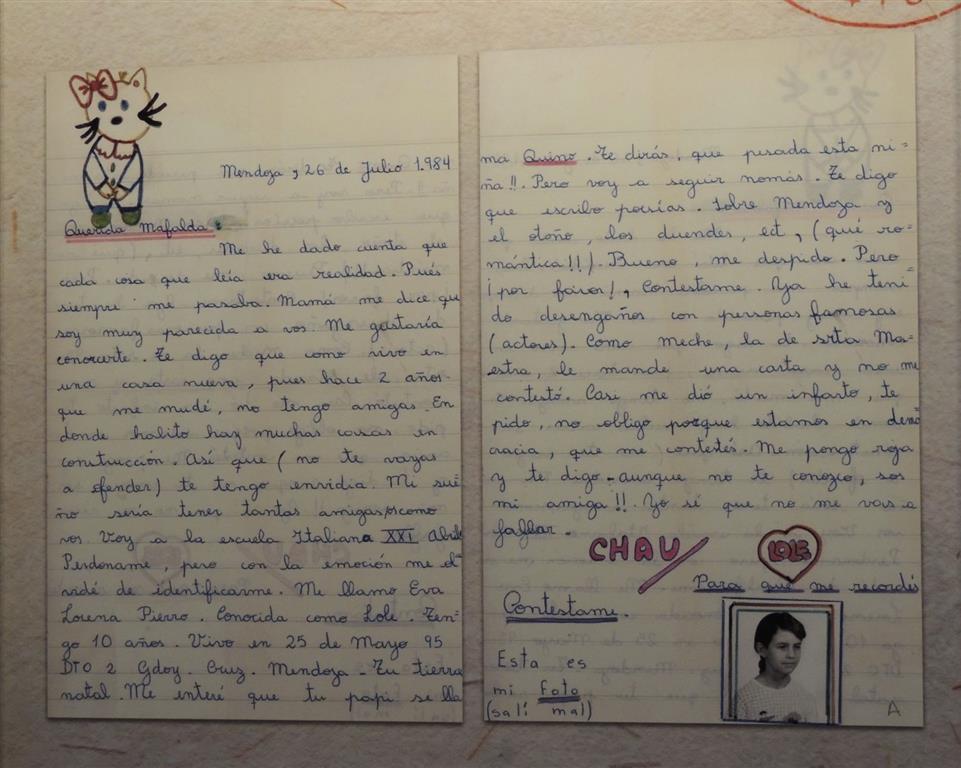 Mendoza, 26 de Julio 1.984
Querida Mafalda:
Me he dado cuenta que
cada cosa que leía era realidad. Pués
siempre me pasaba. Mamá me dice que
soy muy parecida a vos. Me gustaría
conocerte. Te digo que como vivo en
una casa nueva, pues hace 2 años
que me mudé, no tengo amigas. En
donde habito hay muchas casas en
construcción. Así que (no te vayas
a ofender) te tengo envidia. Mi sue
ño sería tener tantas amigas/os como
vos Voy a la escuela Italiana XXI Abril
Perdoname, pero con la emoción me ol
vidé de identificarme. Me llamo Eva
Lorena Pierro. Conocida como Lole. Ten=
go 10 años. Vivo en 25 de Mayo 95
DTO 2 Gdoy. Cruz. Mendoza - Tu tierra
natal. Me enteré que tu papi se lla
ma Quino. Te dirás, que pesada esta ni=
ña!!. Pero voy a seguir nomás. Te digo
que escribo poesías. Sobre Mendoza y
el otoño, los duendes, ect, (qué ro=
mántica!!!). Bueno, me despido. Pero
¡por favor!, Contestame. Ya he teni=
do desengaños con personas famosas
(actores). Como meche, la de srta Ma=
estra, le mande una carta y no me
contestó. Casi me dió un infarto, te
pido, no obligo porque estamos en demo=
cracia, que me contestés. Me pongo roja
y te digo - aunque no te conozco, sos
mi amiga!! Yo sé que no me vas a
fallar.
CHAU
LOLE
Para que me recordés
Contestame.
Esta es
mi foto
(salí mal)
A